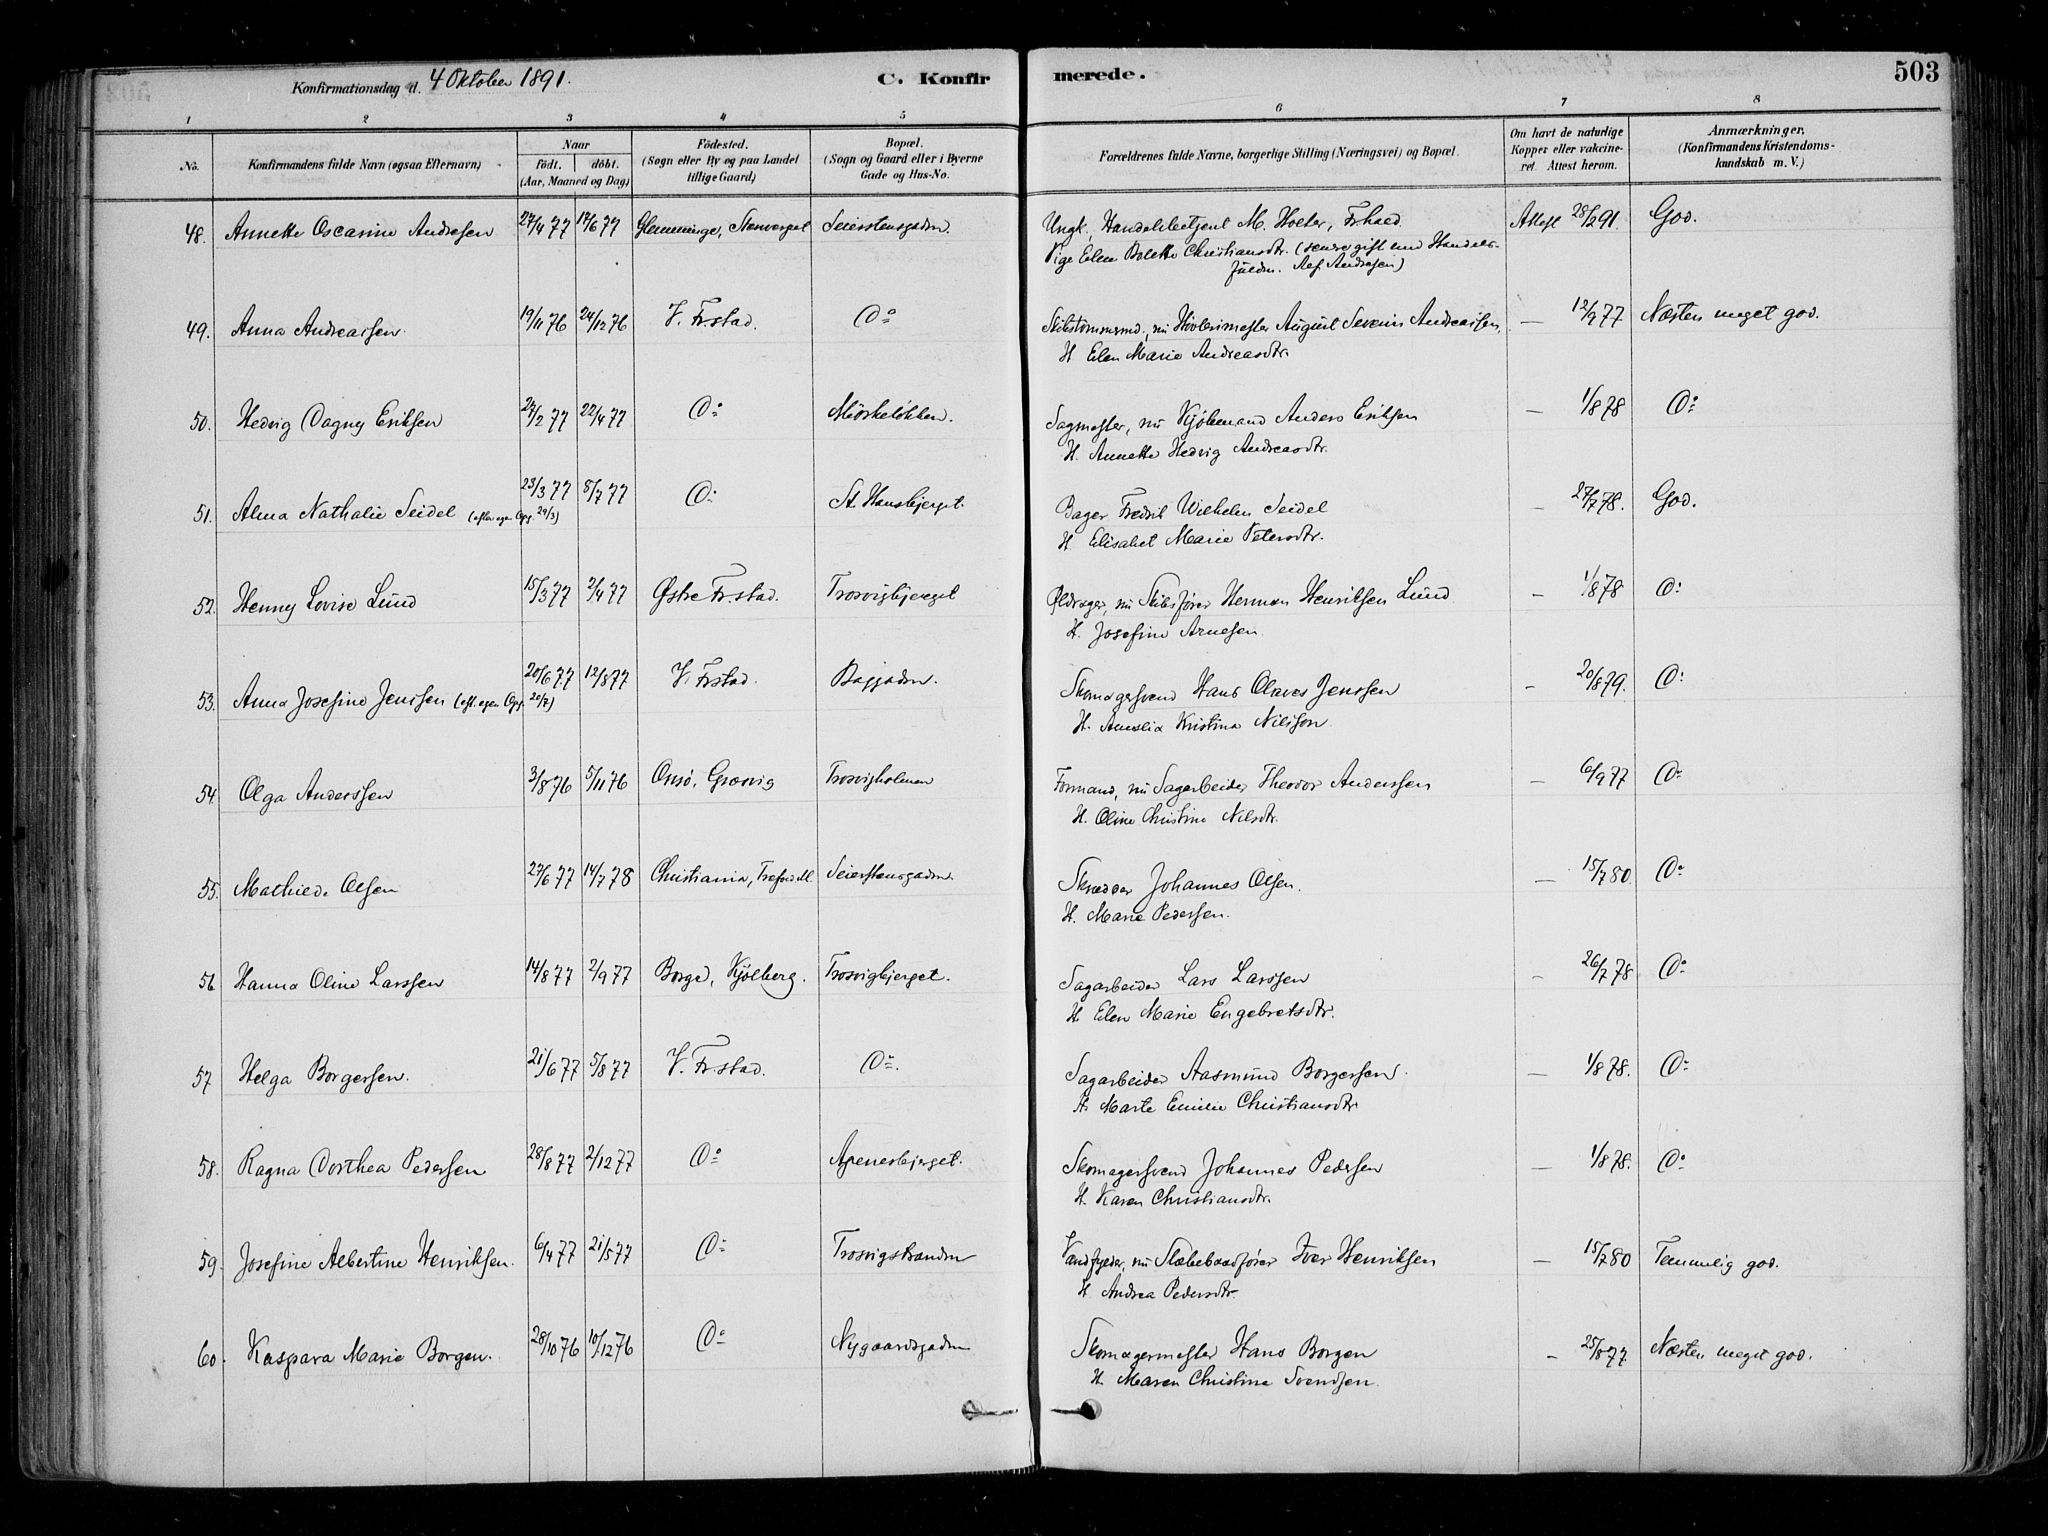 Konfirmationsdag d. 4 Oktober 1891.
C. Konfirmerede.
503
1 2 3 4 5 6 7 8
No. Konfirmandens fulde Navn (ogsaa Efternavn) Naar födt. döbt. (Aar, Maaned og Dag) Födested. (Sogn eller By og paa Landet tillige Gaard) Bopæl. (Sogn og Gaard eller i Byerne Gade og Hus-No. Forældrenes fulde Navne, borgerlige Stilling (Næringsvei) og Bopæl. Om havt de naturlige Kopper eller vakcineret. Attest herom. Anmærkninger. (Konfirmandens Kristendomskundskab m. V.)
48. Annette Oscarine Andresen 27/4 77 17/6 77 Glemminge, Seierstensgaden. Ungk. Handelsbetjent M. Holter, Frhald. Attest 28/2 91. God.
Pige Elen Bolette Christiansdtr. (senere gift med Handels-
fuldm. Andresen)
49. Anna Andreassen 19/11 76 24/12 76 V. Frstad. Do Skibstømmermd., nu Høvlerimester August Severin Andreassen, — 12/2 77 Næsten meget god.
H. Elen Marie Andreasdtr.
50. Hedvig Dagny Eriksen 27/2 77 22/4 77 Do Mörkelökken. Sagmester, nu Kjöbmand Anders Eriksen — 1/8 78 Do
H. Annette Hedvig Andreasdtr.
51. Alma Nathalie Seidel (efter egen Opg. 29/3) 23/3 77 8/7 77 Do St. Hansbjerget. Bager Fredrik Wilhelm Seidel - 27/7 78. God.
H. Elisabet Marie Petersdtr.
52. Henny Lovise Lund 15/3 77 2/4 77 Østre Fr.stad. Trosvigbjerget Øldrager, nu Skibsfører Herman Henriksen Lund - 1/8 78 Do
H. Josefine Arnesen
53. Anna Josefine Jenssen (eft. egen Opg. 20/7) 20/6 77 12/8 77 V. Frstad. Baggaden. Skomagersvend Hans Olaves Jenssen - 20/8 79. Do
H. Amalia Kristina Nilsson
54 Olga Anderssen 3/8 76 5/11 76 Onsö, Græsvig Trosvigholmen Formand, nu Sagarbeider Theodor Anderssen — 6/9 77 Do
H. Oline Christine Nilsdtr.
55. Mathilde Olsen 27/6 77 14/7 78 Christiania, Seierstensgaden. Skrædder Johannes Olsen. — 15/7 80. Do
H. Marie Pedersen.
56 Hanna Oline Larssen 14/8 77 2/9 77 Borge, Kjölberg. Trosvigbjerget. Sagarbeider Lars Larssen - 26/7 78 Do
H. Elen Marie Engebretsdtr.
57 Helga Borgersen. 21/6 77 5/8 77 V. Fr.stad. Do. Sagarbeider Aasmund Borgersen. — 1/8 78. Do
H. Marte Emilie Christiansdtr
58. Ragna Dorthea Pedersen 28/8 77 2/12 77 Do Apenesbjerget. Skomagersvend Johannes Pedersen — 1/8 78. Do
H. Karen Christiansdtr.
59. Josefine Albertine Henriksen. 6/4 77 21/5 77 Do Trosvigstranden nu Slæbebaadfører Iver Henriksen — 15/7 80 Temmelig god.
H. Andrea Pedersdtr.
60. Kaspara Marie Borgen. 28/10 76 10/12 76 Do Nygaardsgaden Skomagermester Hans Borgen — 25/8 77. Næsten meget god.
H. Maren Christine Svendsen.